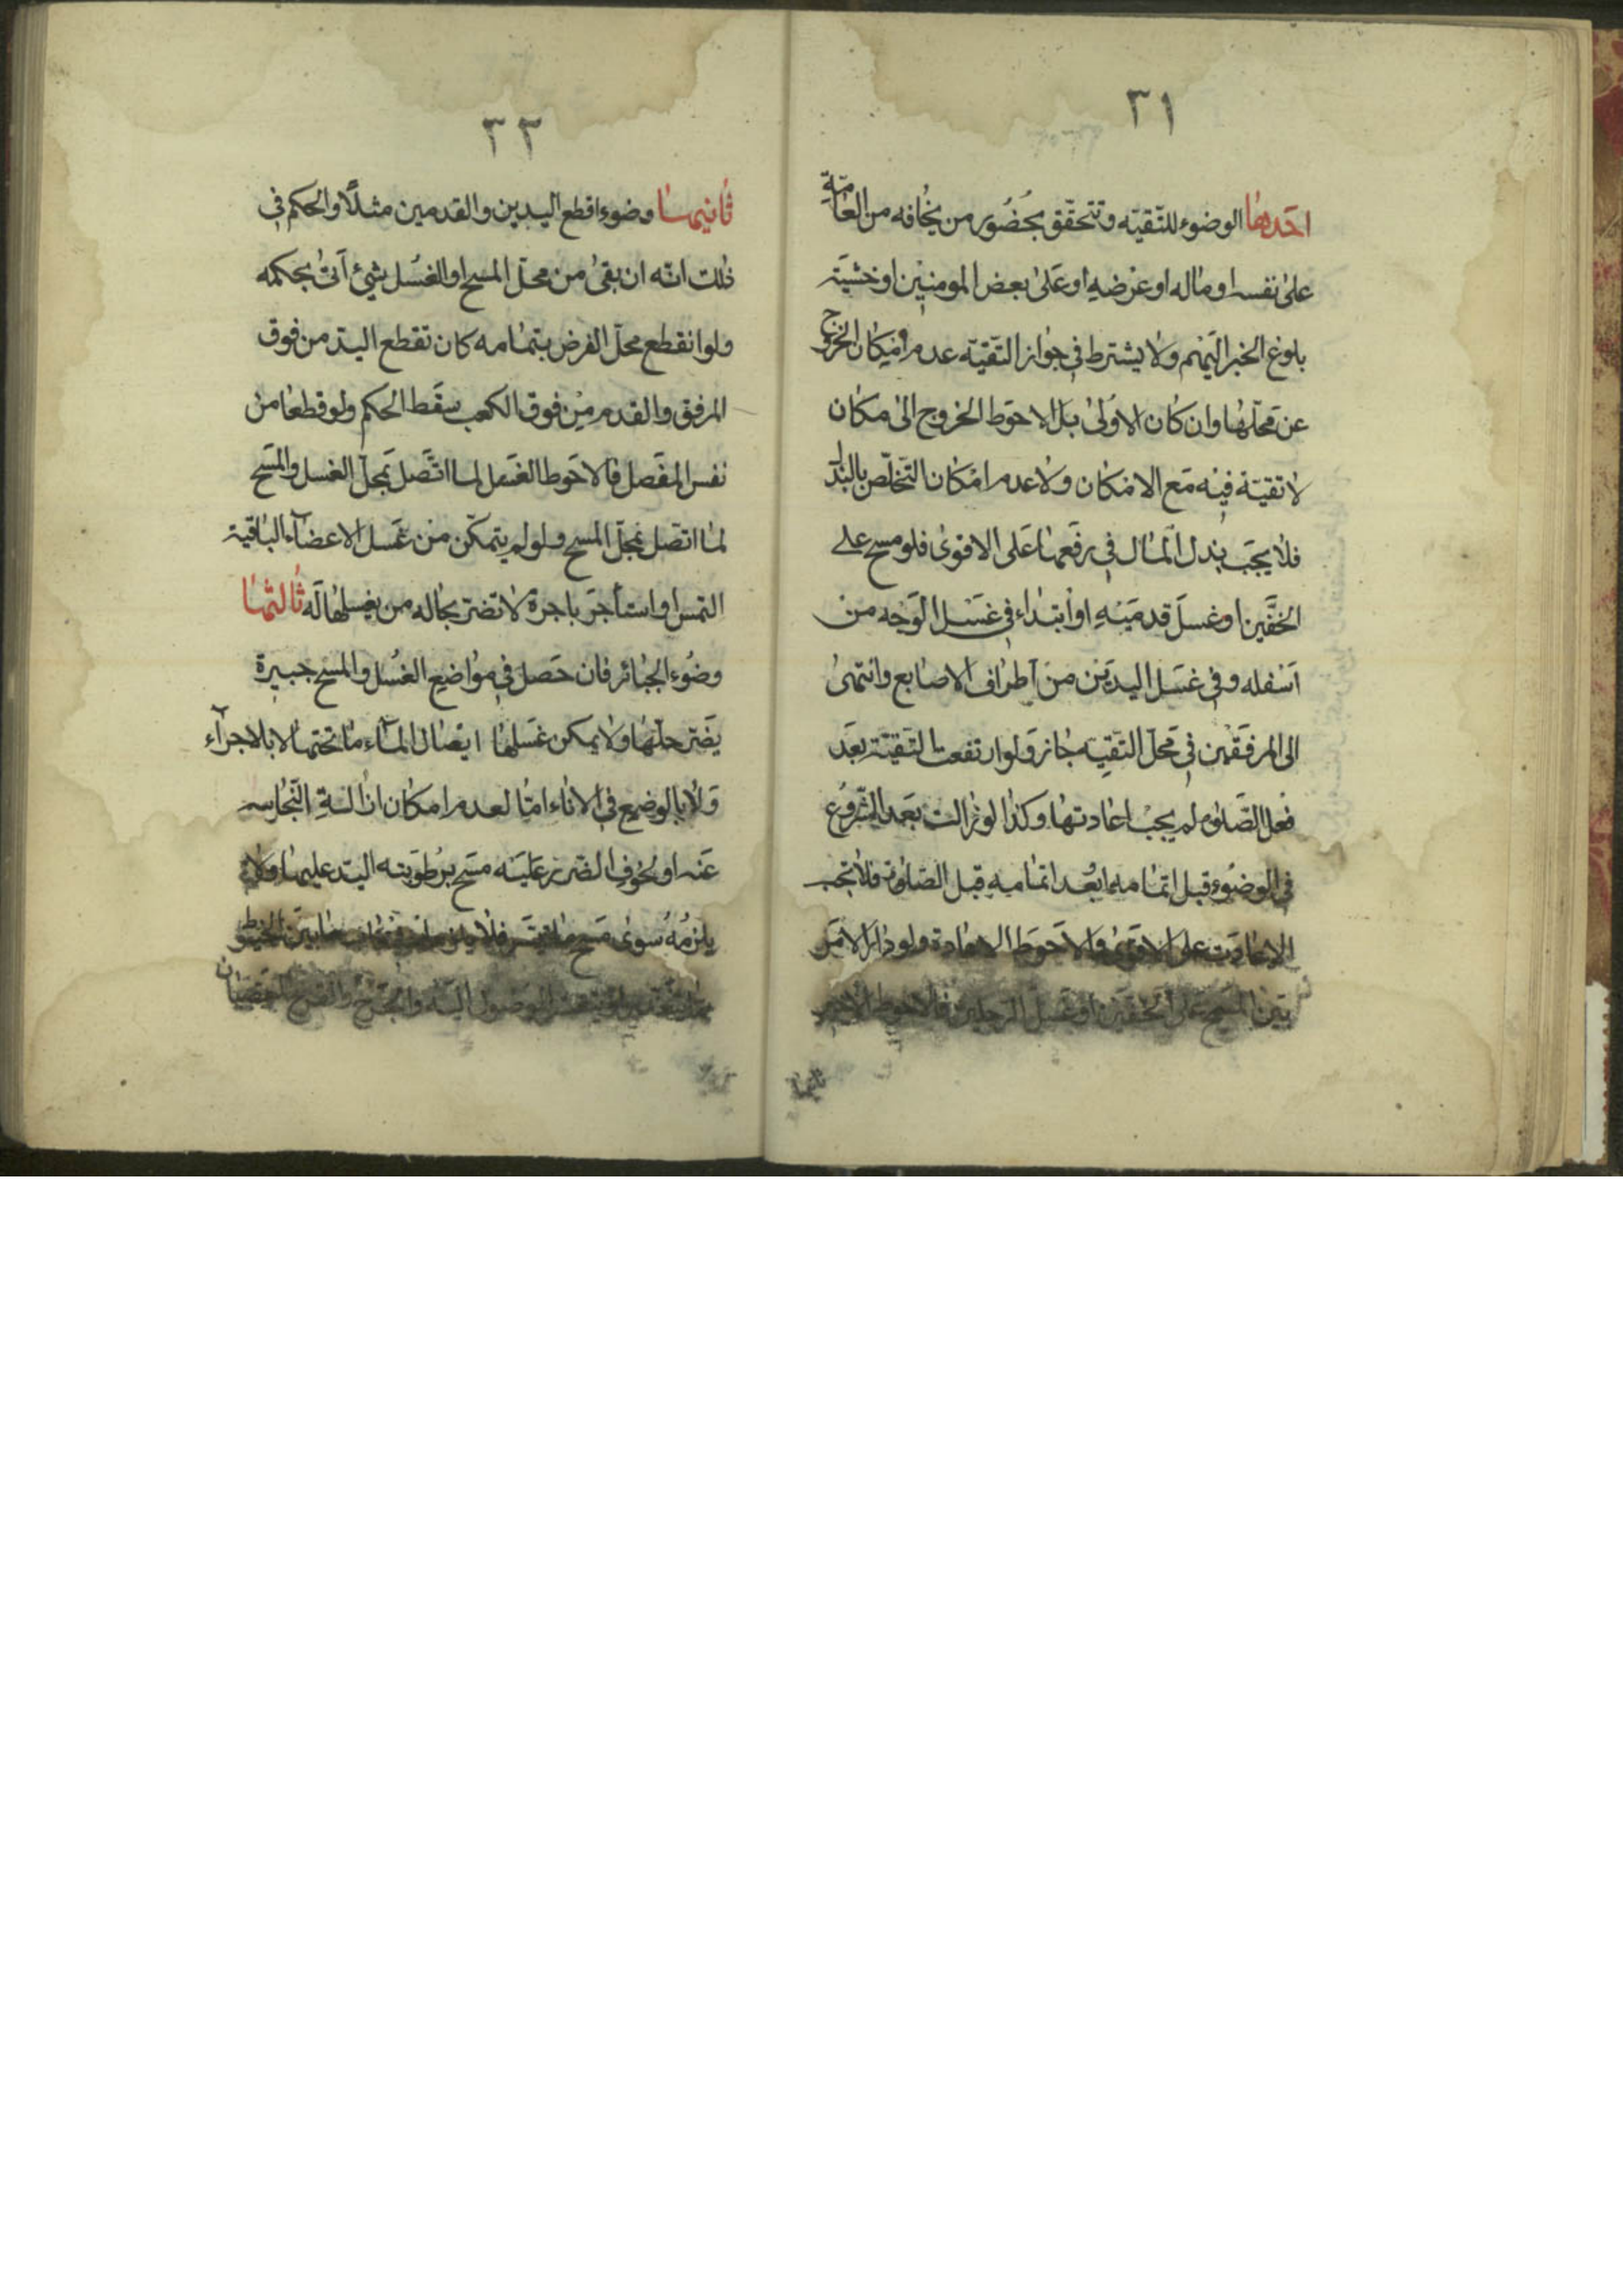 ٣١
احدها الوضوء للتّقيّه وتتحقّق بحضور من يخافه من العامّة
على نفسه او ماله او عرضه او على بعض المومنين او خشية
بلوغ الخبر اليهم ولا يشترط في جواز التّقيّه عدم امكان الخروج
عن محلّها وان كان الاولى بل الاحوط الخروج الى مكان
لا تقيّة فيه مع الامكان ولا عدم امكان التخلّص بالبذل
فلا يجب بذل المال في رفعها على الاقوى فلو مسح على
الخفّين او غسل قدميه او ابتداء في غسل الوجه من
اسفله وفي غسل اليدين من اطراف الاصابع وانتهى
الى المرفقين في محلّ التقيه جاز ولو ارتفعت التقيّة بعد
فعل الصّلوة لم يجب اعادتها وكذا لو زالت بعد الشّروع
في الوضوء قبل اتمامه او بعد اتمامه قبل الصّلوة فلا تجب
الاعادت على الاقوى والاحوط الاعادة ولو دار الامر
بين المسح على الخفّين او غسل الرجلين فالاحوط الاخير
ثانيها
٣٢
ثانيها وضوء اقطع اليدين والقدمين مثلًا والحكم في
ذلك انّه ان بقى من محلّ المسح او الغسل شيئ اتى بحكمه
ولو انقطع محلّ الفرض بتمامه كان تقطع اليد من فوق
المرفق والقدم من فوق الكعب سقط الحكم ولو قطعا من
نفس المفصل فالاحوط الغسل لما اتّصل بمحلّ الغسل والمسح
لما اتصل بمحلّ المسح ولو لم يتمكّن من غسل الاعضاء الباقية
التمس او استأجر باجرة لا تضرّ بحاله من يغسلها له ثالثها
وضوء الجبائر فان حصل في مواضع الغسل والمسح جبيرة
يضرّ حلّها ولا يمكن غسلها ايصال الماء ما تحتها لا بالاجراء
ولا بالوضع في الاناء امّا لعدم امكان ازالة النّجاسه
عنه او لخوف الضّرر عليه مسح برطوبته اليد عليها ولا
يلزمه سوى مسح ما ما بين الخيوط
الوصول اليه والجرح